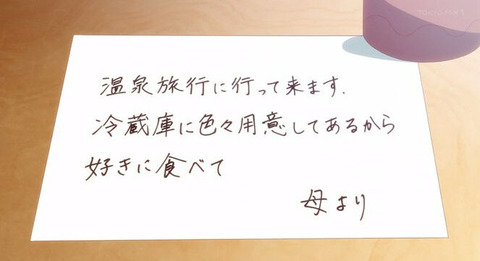 温泉旅行に行って来ます.
冷蔵庫に色々用意してあるから
好きに食べて
母より